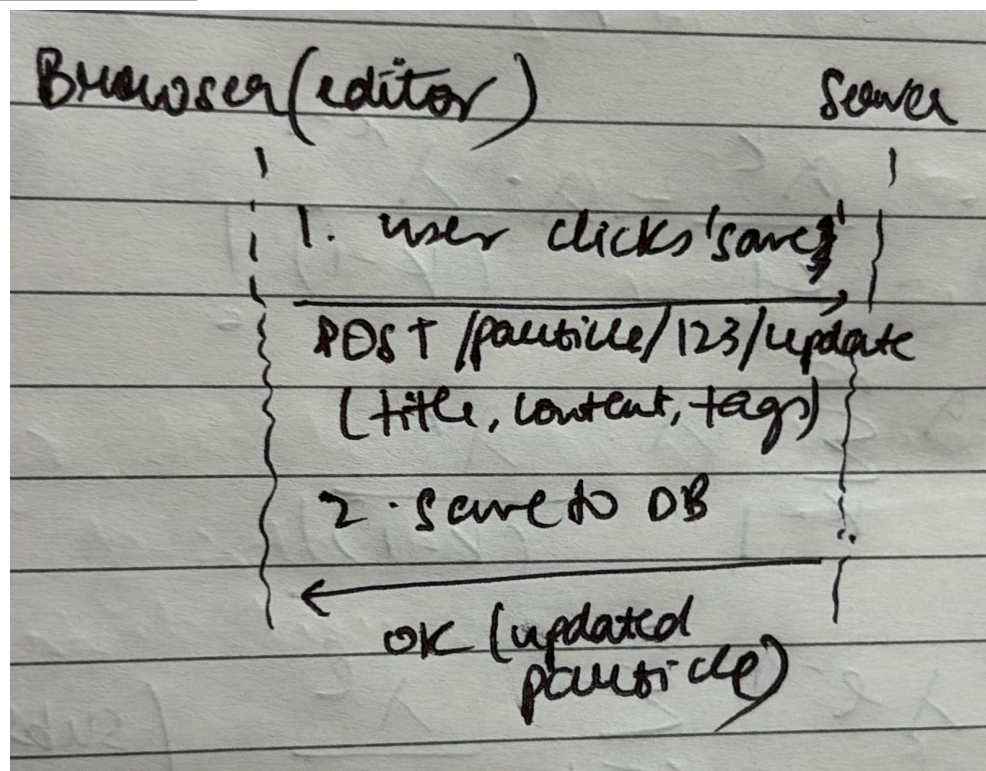 Browser (editor) Server
1. user clicks 'save'
POST /particle/123/update
(title, content, tags)
2. save to DB
OK (updated
particle)